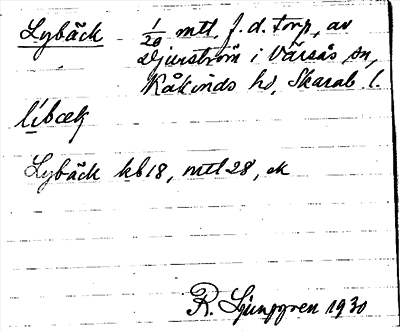 Lybäck 1/20 mtl, f. d. torp, av
Djurström i Värsås sn,
Kåkinds hd, Skarab. l.
líbæk
Lybäck kb 18, mtl 28, ek
R. Ljunggren 1930